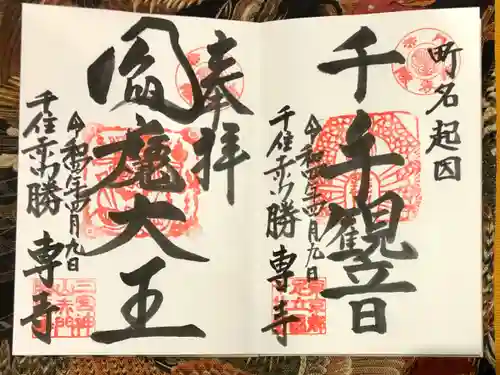 町名起因
千手觀音
令和四年四月九日
千住赤門勝専寺
奉拝
閻魔大王
令和四年四月九日
千住赤門勝専寺